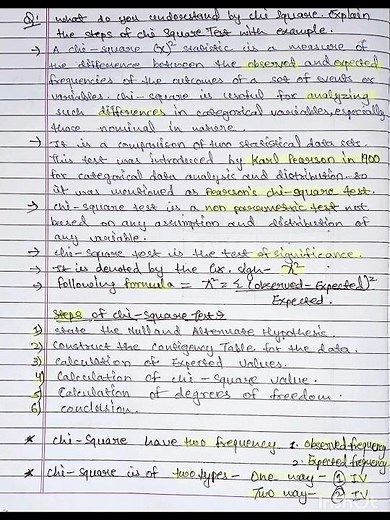 Q: what do you understand by chi square. Explain
the steps of chi square Test with example.
→ A chi-square (x)² statistic is a measure of
the difference between the observed and expected
frequencies of the outcomes of a set of events or
variables. chi-square is useful for analyzing
such differences in categorical variables, especially
those nominal in nature.
→ It is a comparison of two statistical data sets.
This test was introduced by Karl Pearson in 1900
for categorical data analysis and distribution. so
it was mentioned as Pearson's chi-square test.
→ chi-square test is a non parametric test not
based on any assumption and distribution of
any variable.
→ chi-square test is the test of significance.
→ It is denoted by the Gk. sign - χ²
→ Following formula = χ² = Σ (Observed-Expected)²
Expected.
Steps of chi-square Test →
1) state the Null and Alternate Hypothesis
2) construct the contigency Table for the data.
3) calculation of Expected values.
4) Calculation of chi-square value.
5) Calculation of degrees of freedom.
6) conclusion.
* chi-square have two frequency 1. Observed frequency
2. Expected frequency
* chi-square is of two types - One way - ① IV
Two way - ② IV